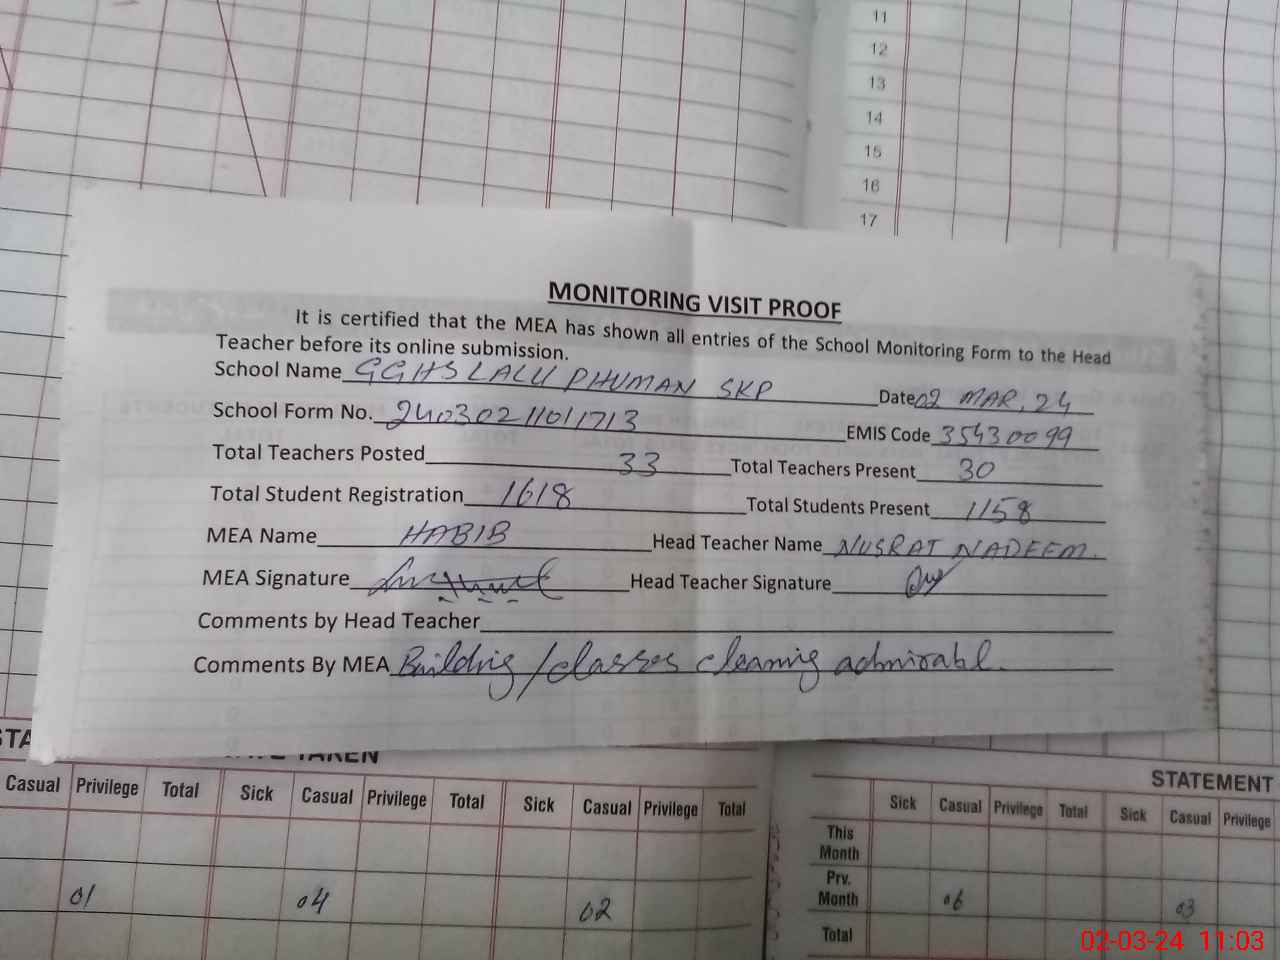 11
12
13
14
15
16
17
MONITORING VISIT PROOF
It is certified that the MEA has shown all entries of the School Monitoring Form to the Head
Teacher before its online submission.
School Name GGHS LALU PHUMAN SKP Date 02 MAR, 24
School Form No. 24030211011713 EMIS Code 35430099
Total Teachers Posted 33 Total Teachers Present 30
Total Student Registration 1618 Total Students Present 1158
MEA Name HABIB Head Teacher Name NUSRAT NADEEM.
MEA Signature Head Teacher Signature
Comments by Head Teacher
Comments By MEA Building/classes cleaning admirabl.
TAKEN
Casual Privilege Total Sick Casual Privilege Total Sick Casual Privilege Total
01 04 02
STATEMENT
Sick Casual Privilege Total Sick Casual Privilege
This
Month
Prv.
Month 06 03
Total
02-03-24 11:03